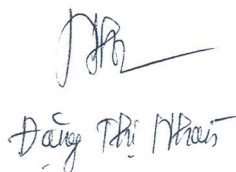 Đặng Thị Nhài